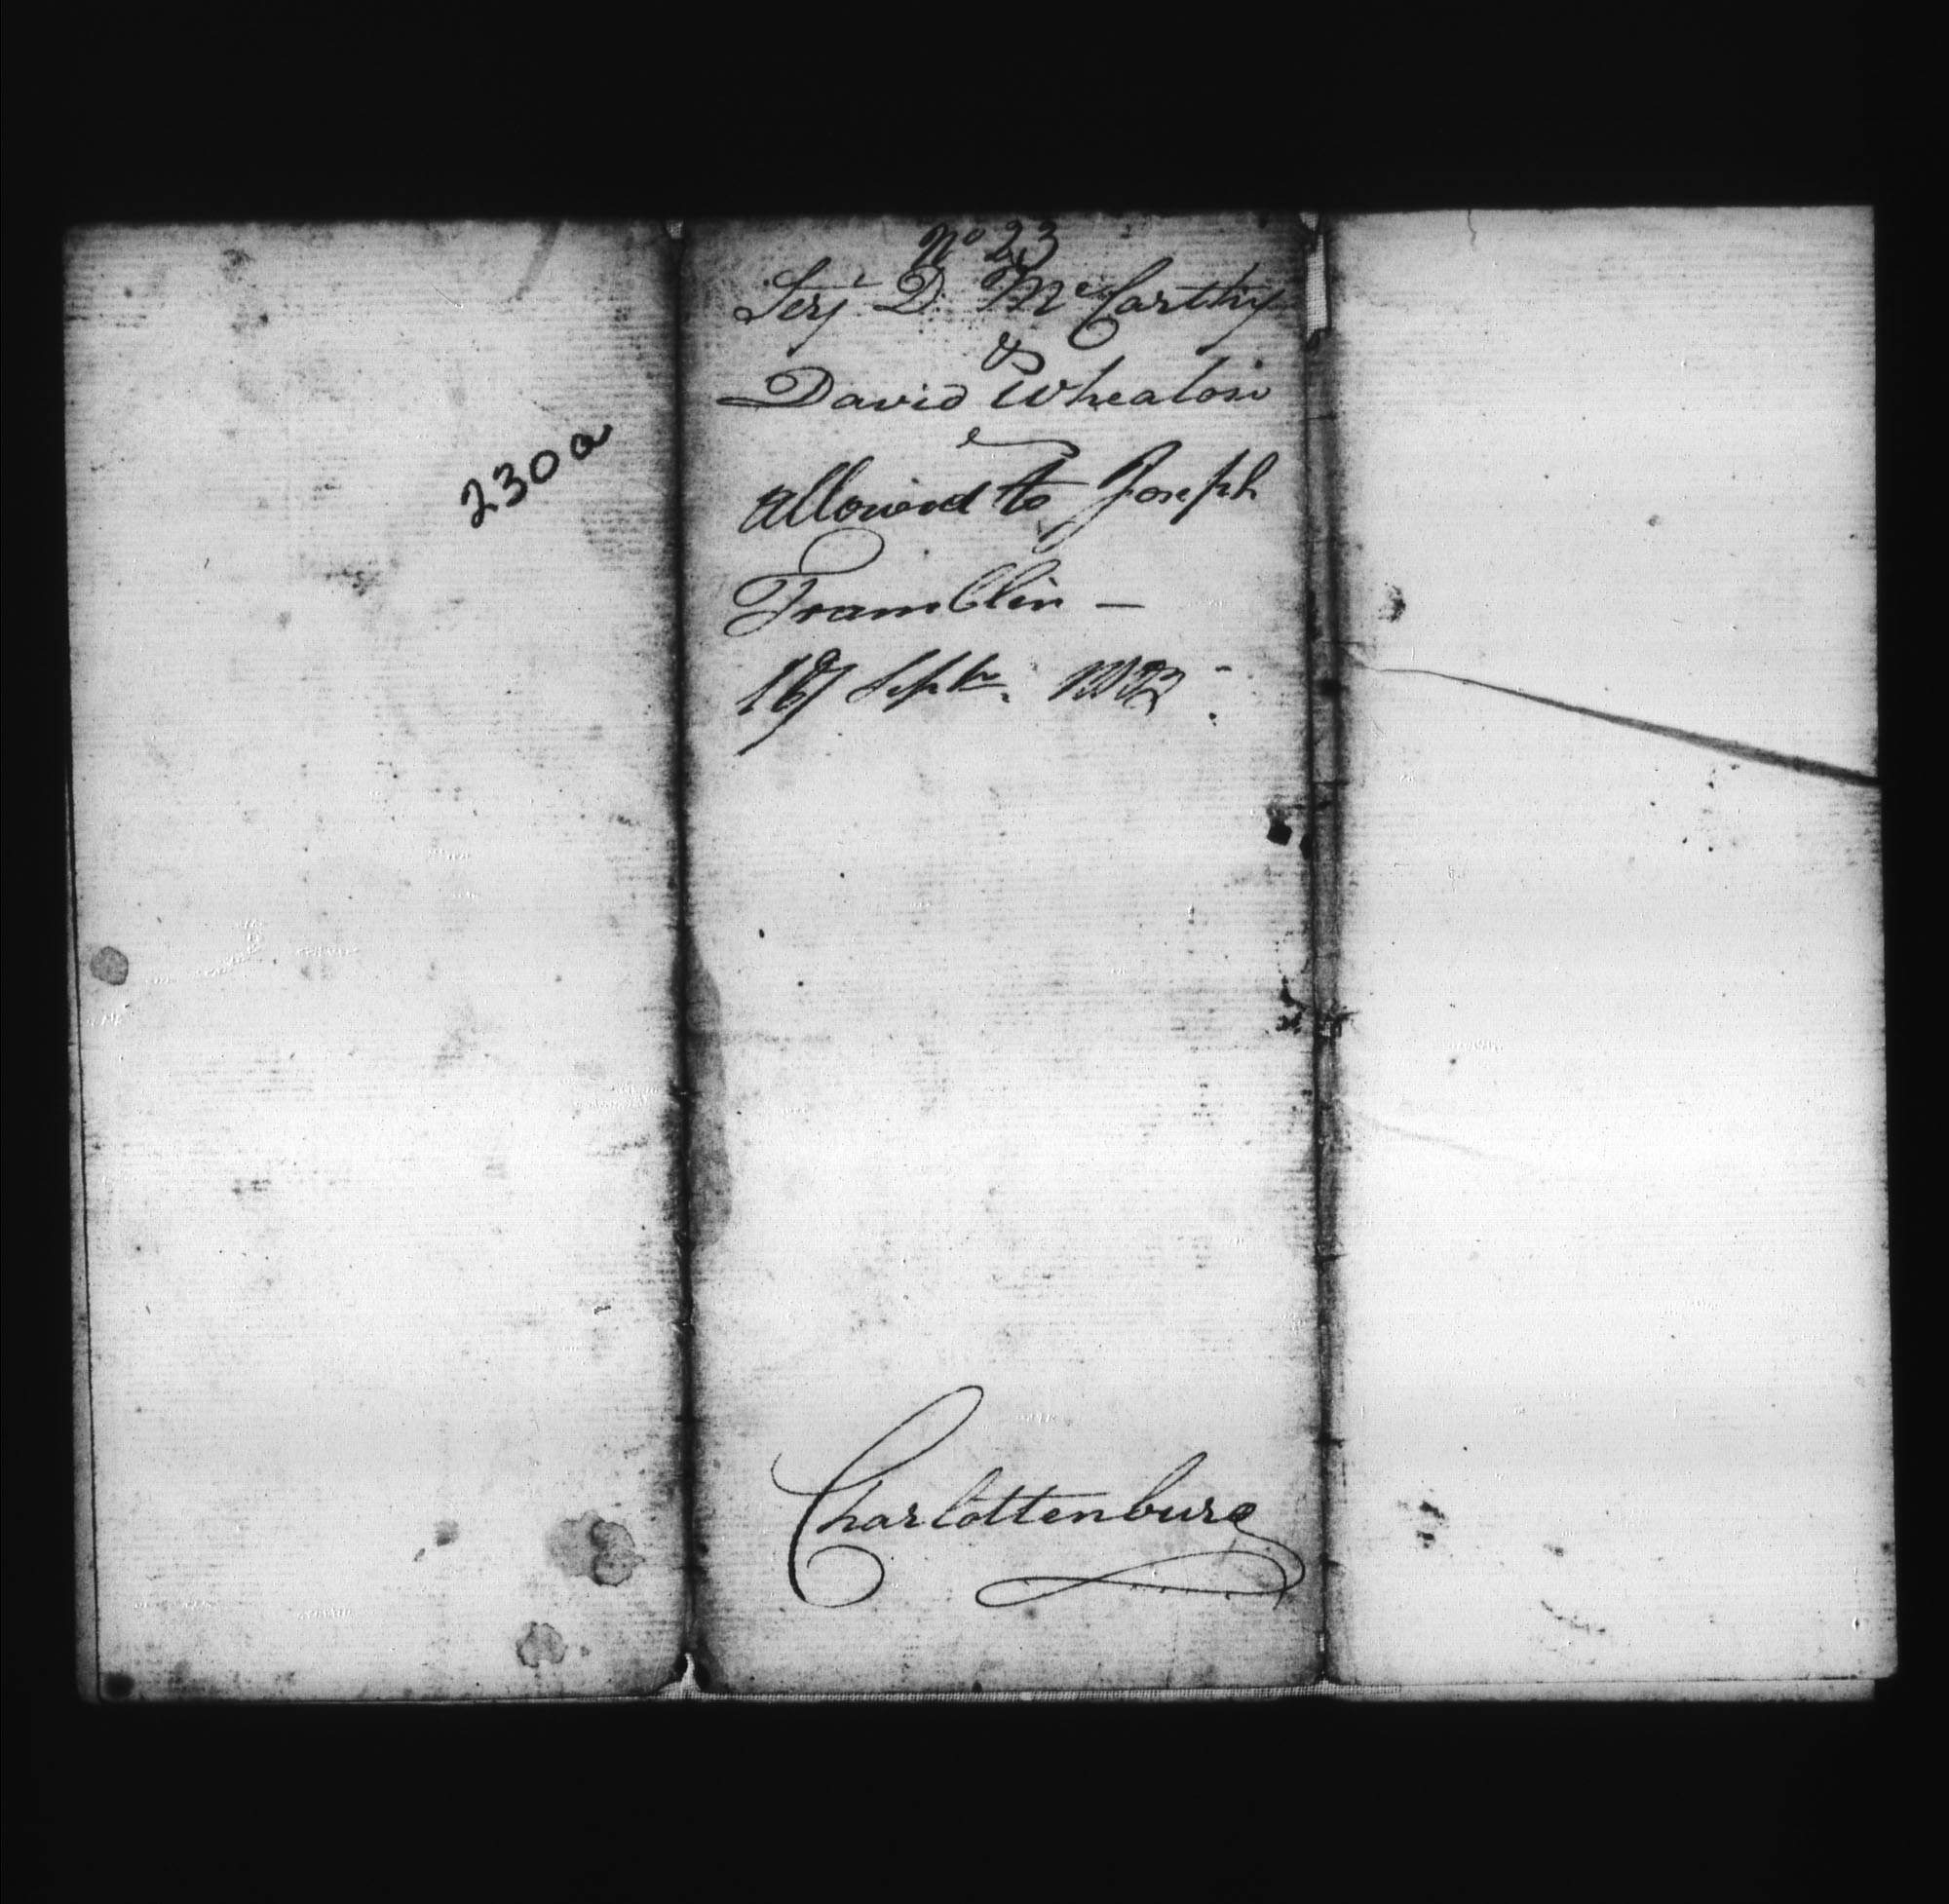 230a
No 23
Serjt D. McCarthy
&
David Wheaton
allowed to Joseph
Framblin —
Septr.
Charlottenburg